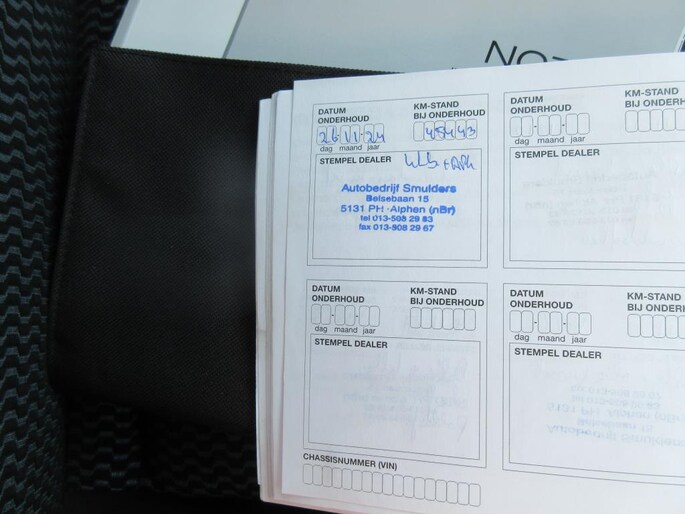 DATUM
ONDERHOUD
KM-STAND
BIJ ONDERHOUD
26-11-24
45443
dag maand jaar
STEMPEL DEALER
Autobedrijf Smulders
Belsebaan 15
5131 PH Alphen (nBr)
tel 013-508 29 83
fax 013-508 29 67
DATUM
ONDERHOUD
KM-STAND
BIJ ONDERH
dag maand jaar
STEMPEL DEALER
DATUM
ONDERHOUD
KM-STAND
BIJ ONDERHOUD
dag maand jaar
STEMPEL DEALER
DATUM
ONDERHOUD
KM-STAND
BIJ ONDER
dag maand jaar
STEMPEL DEALER
CHASSISNUMMER (VIN)